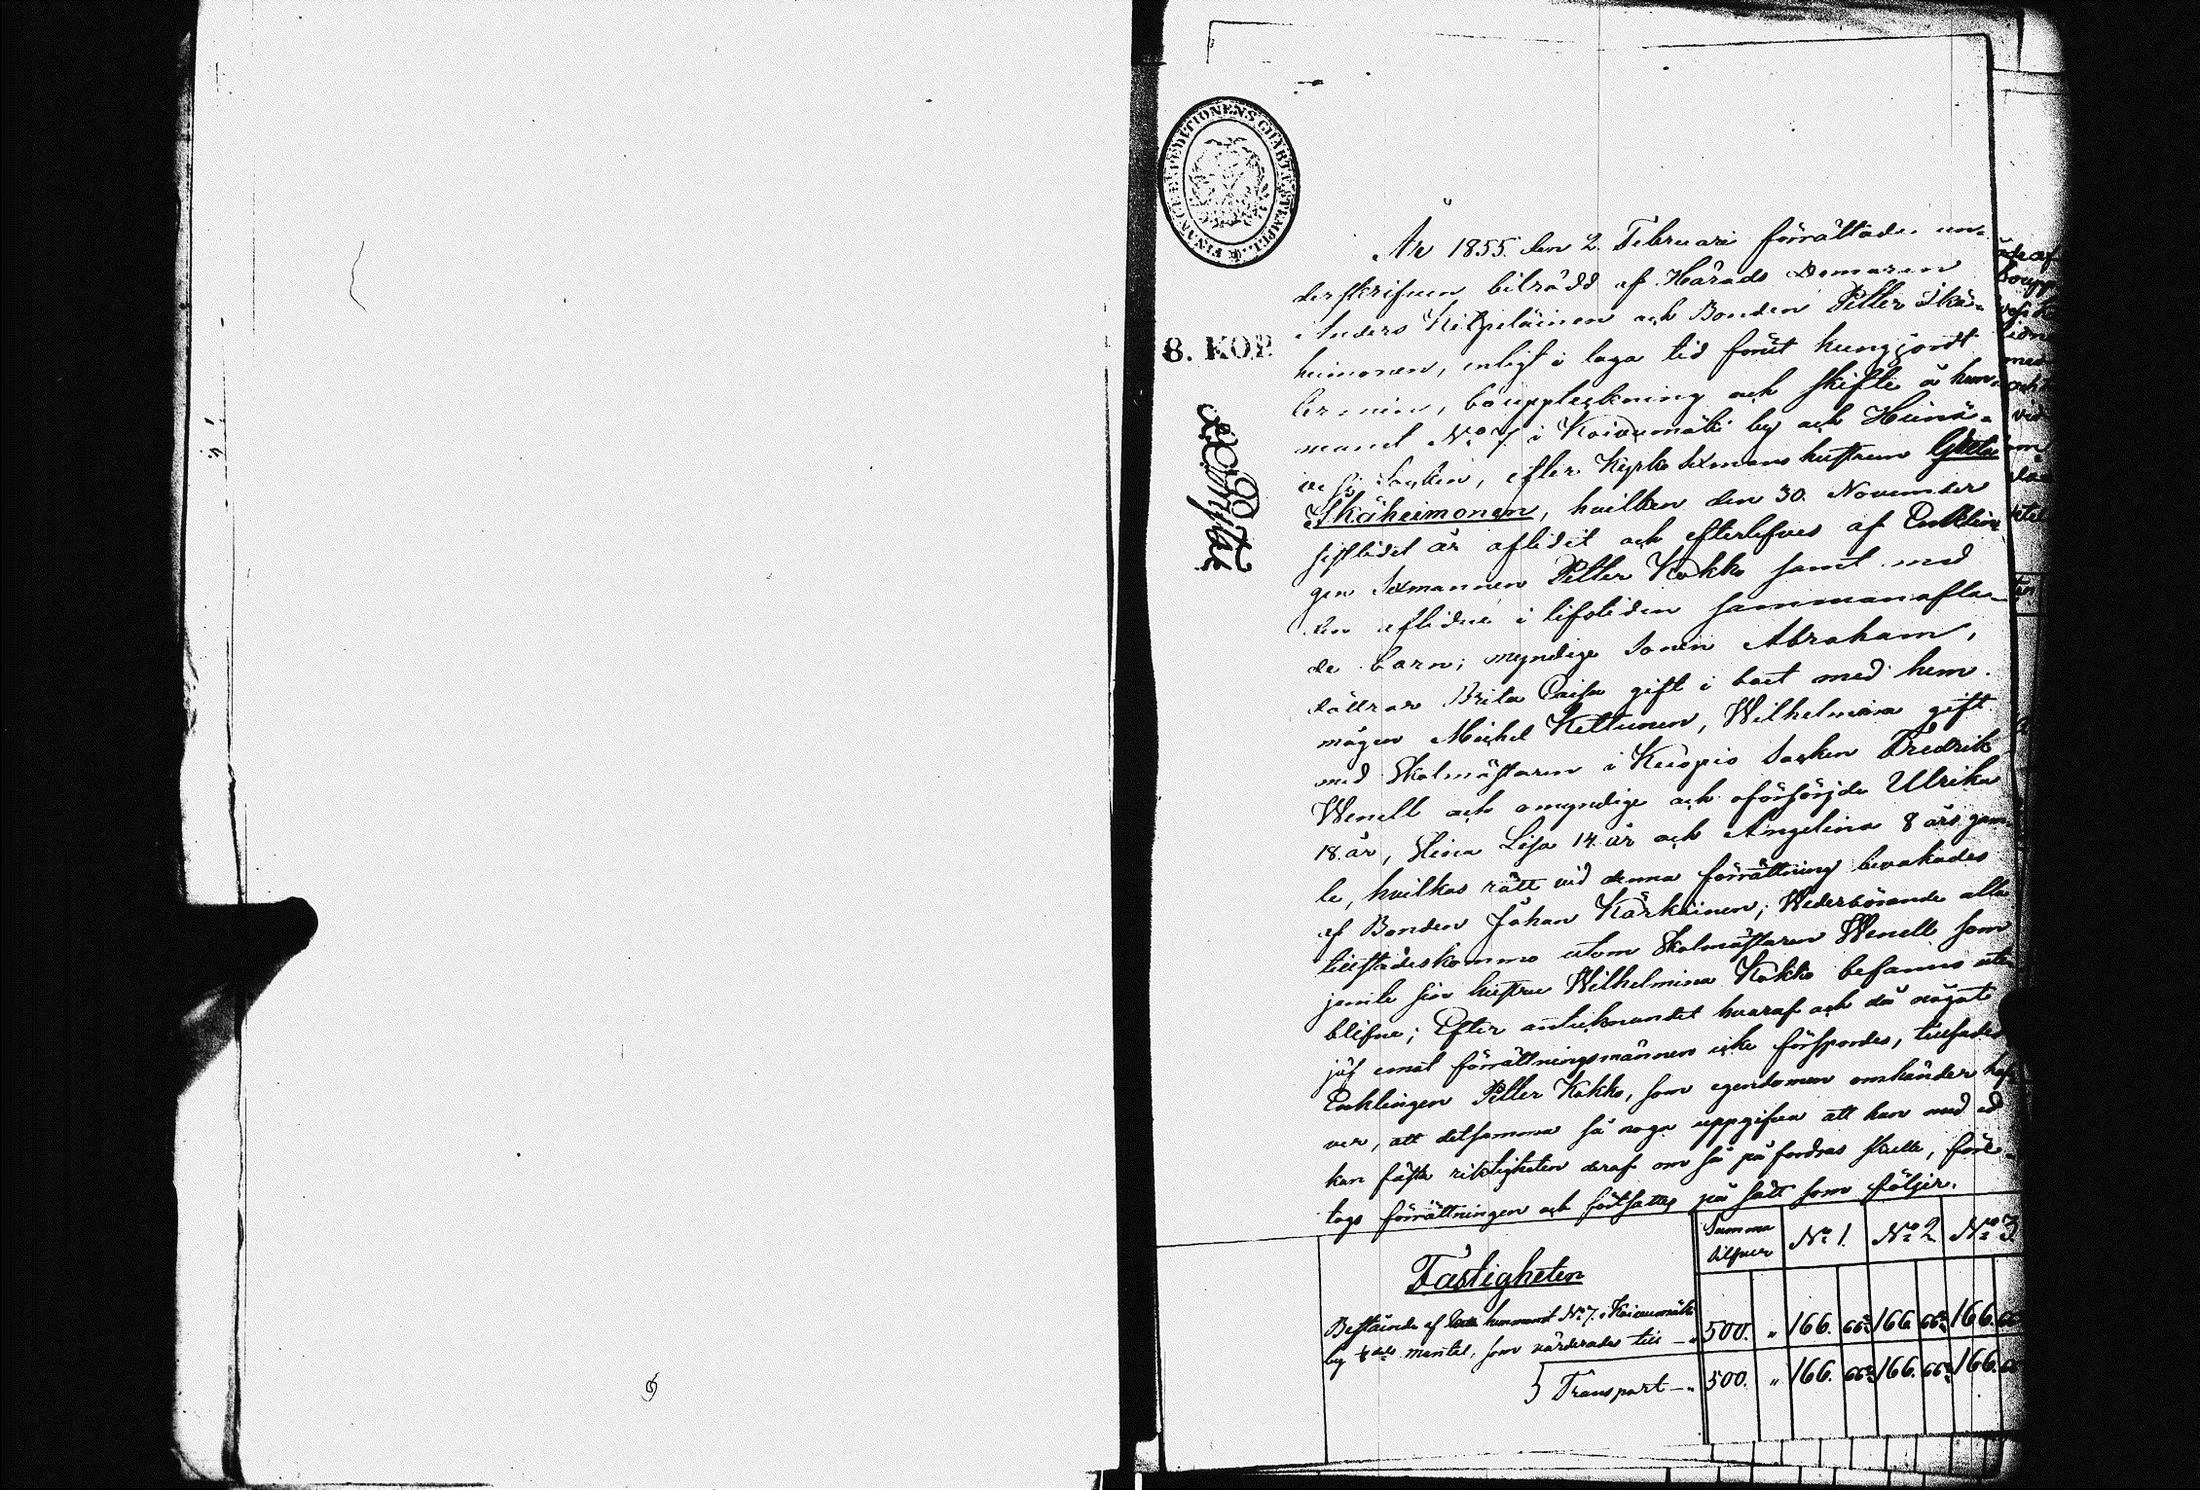 FINANCE EXPEDITIONENS CHARTÆ STEMPEL
8. KOP.
År 1855 den 2. Februari förrättade un-
derskrifven biträdd af Härads Domaren
Anders Kilpeläinen och Bonden Petter Ikä-
heimonen, enligt i laga tid förut kungjordt
termin, bouppteckning och skifte å hem-
manet No 7 i Koivumäki by och Heinä-
vesi Socken, efter Kyrko sexmans hustrun Greta
Ikäheimonen, hvilken den 30. November
sistlidet år aflidit och efterlefves af Enklin-
gen Sexmannen Petter Kokko samt med
den aflidne i lifstiden sammanafla-
de barn; myndige Sonen Abraham,
döttrar Brita Caisa gift i boet med hem-
mågen Michel Kettunen, Wilhelmina gift
med Skolmästaren i Kuopio Socken Fredrik
Wenell och omyndige och oförsörjde Ulrika
18. år, Stina Lisa 14. år och Angelina 8 års gam-
le, hvilkas rätt vid denna förrättning bevakades
af Bonden Johan Kärkäinen; Wederbörande alla
tillstädeskommo utom Skolmästaren Wenell som
jemte sin hustru Wilhelmina Kokko befanns ute-
blifne; Efter antecknandet hvaraf och då något
jäf emot förrättningsmännen icke förspordes, tillsades
Enklingen Petter Kokko, som egendomen omhänder haf-
ver, att detsamma så noga uppgifva att han med ed
kan fästa riktigheten deraf om så påfordras skulle, före-
togs förrättningen och fortsattes på sätt som följer.
Summa Silfver No 1. No 2 No 3.
Fastigheten
Bestående af hemmanet No 7. i Koivumäki
by mantal, som värderades till — " 500. " 166. 66 2/3 166. 66 2/3 166. 66
Transport — " 500. " 166. 66 2/3 166. 66 2/3 166. 66